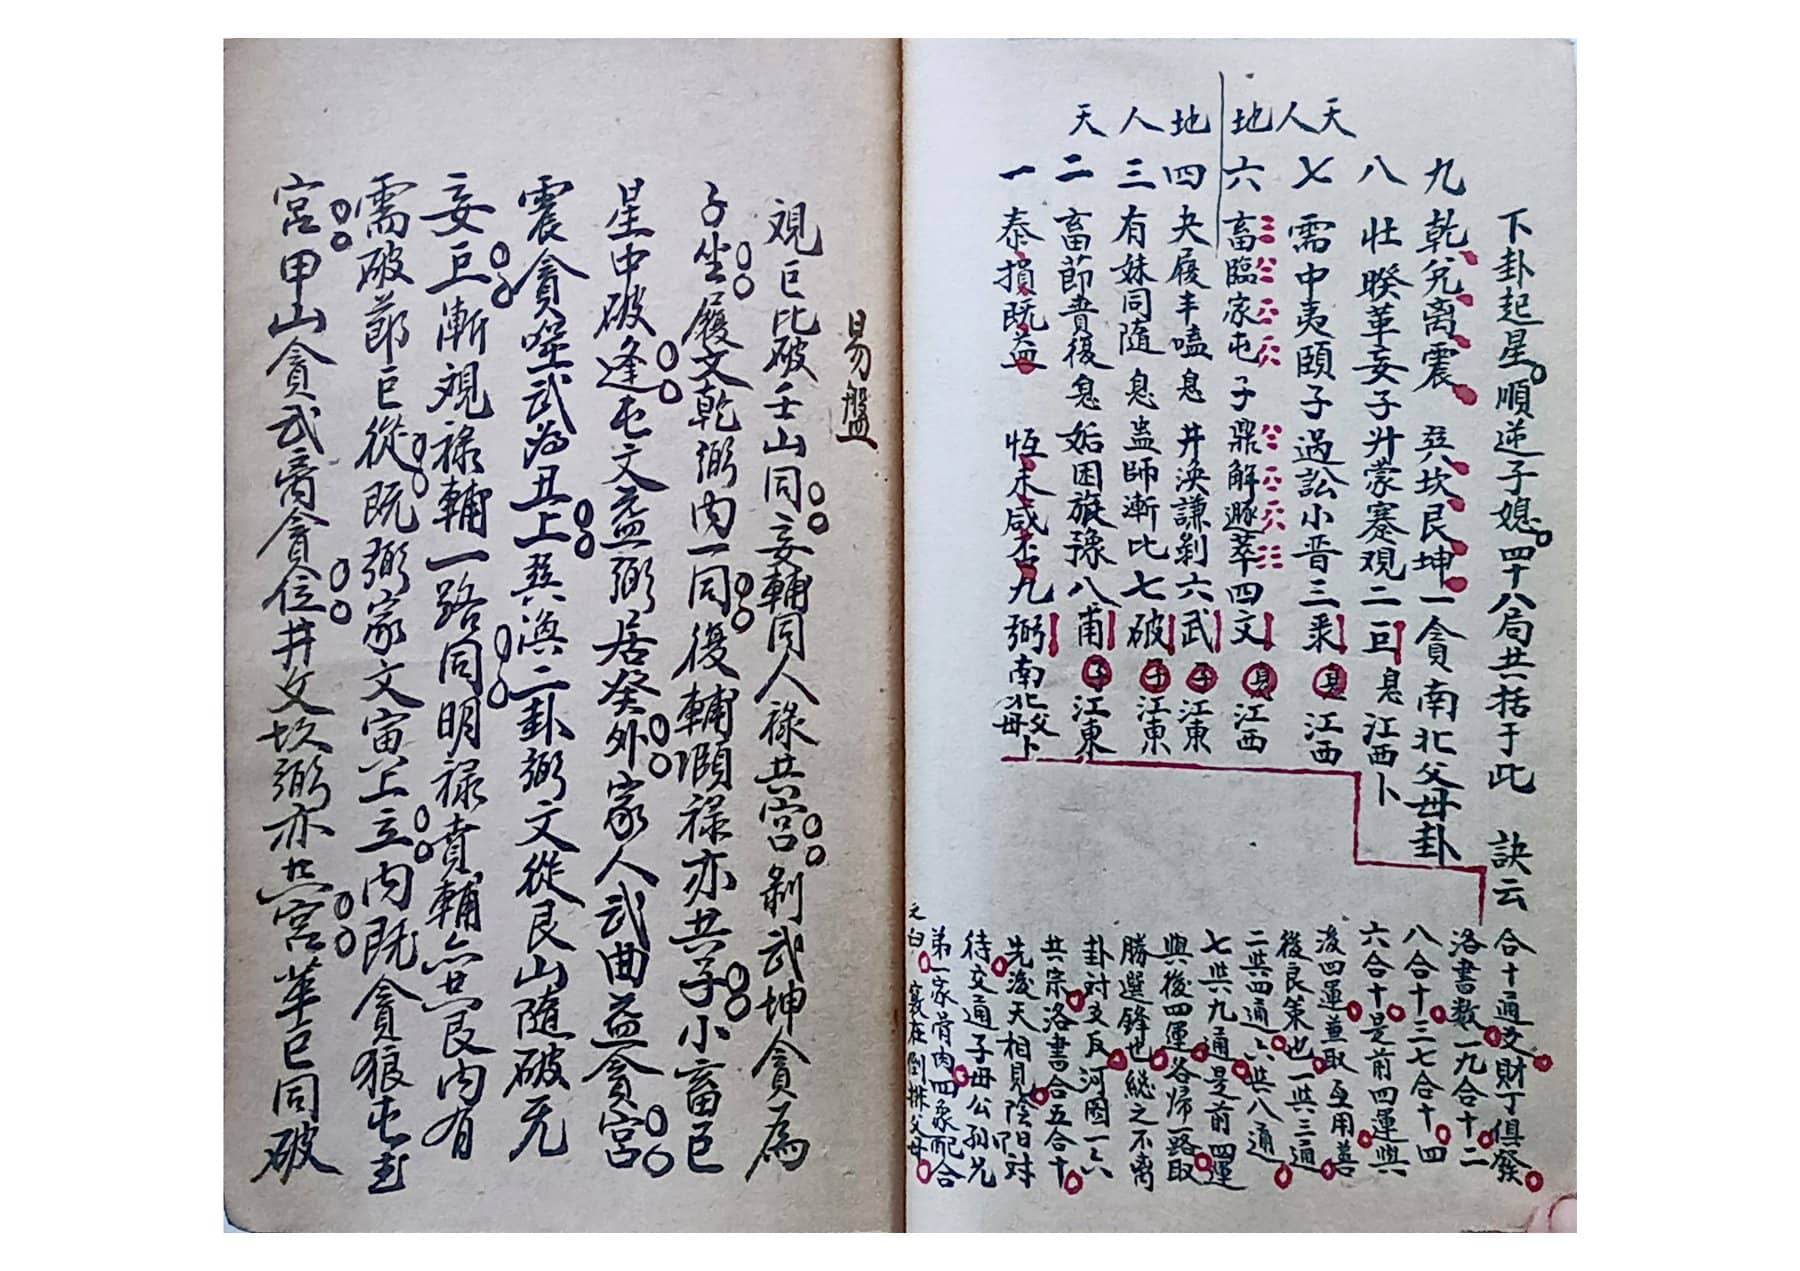 下卦起星順逆子媳四十八局共括于此 訣云
天人地地人天
九 乾兌離震 巽坎艮坤一貪南北父母卦
八 壯暌革妄子升蒙蹇观二巨息江西卜
七 需中夷頤子過訟小晋三彔息江西
六 畜臨家屯子鼎解遯萃四文息江西
四 夬履丰嗑息井渙謙剝六武子江東
三 有妹同随息蛊師漸比七破子江東
二 畜節賁復息姤困旅豫八甫子江東
一 泰損既益 恆未咸否九弼南北父母卜
合十通变財丁俱發
洛書数一九合十二
八合十三七合十四
六合十是前四運與
后四運兼取互用善
後良策也一共三通
二共四通六共八通
七共九通是前四運
與後四運各歸一路取
勝選鋒也總之不离
卦对爻反河圖一六
共宗洛書合五合十
先後天相見陰阳对
待交通子母公孙兄
弟一家骨肉四象配合
之白 裒在倒排父母
易盤
观巨比破壬山同妄輔同人祿共宫剝武坤貪為
子坐履文乾弼内一同復輔頤祿亦共子小畜巨
星中破逢屯文益弼居癸外家人武曲益貪宫
震貪噬武为丑上巽渙二卦弼文從艮山隨破无
妄巨漸观祿輔一路同明祿賁輔亦共艮内有
需破節巨從既弼家文寅上立内既貪狼屯
宫甲山貪武高貪位井文坎弼亦共宫革巨同破